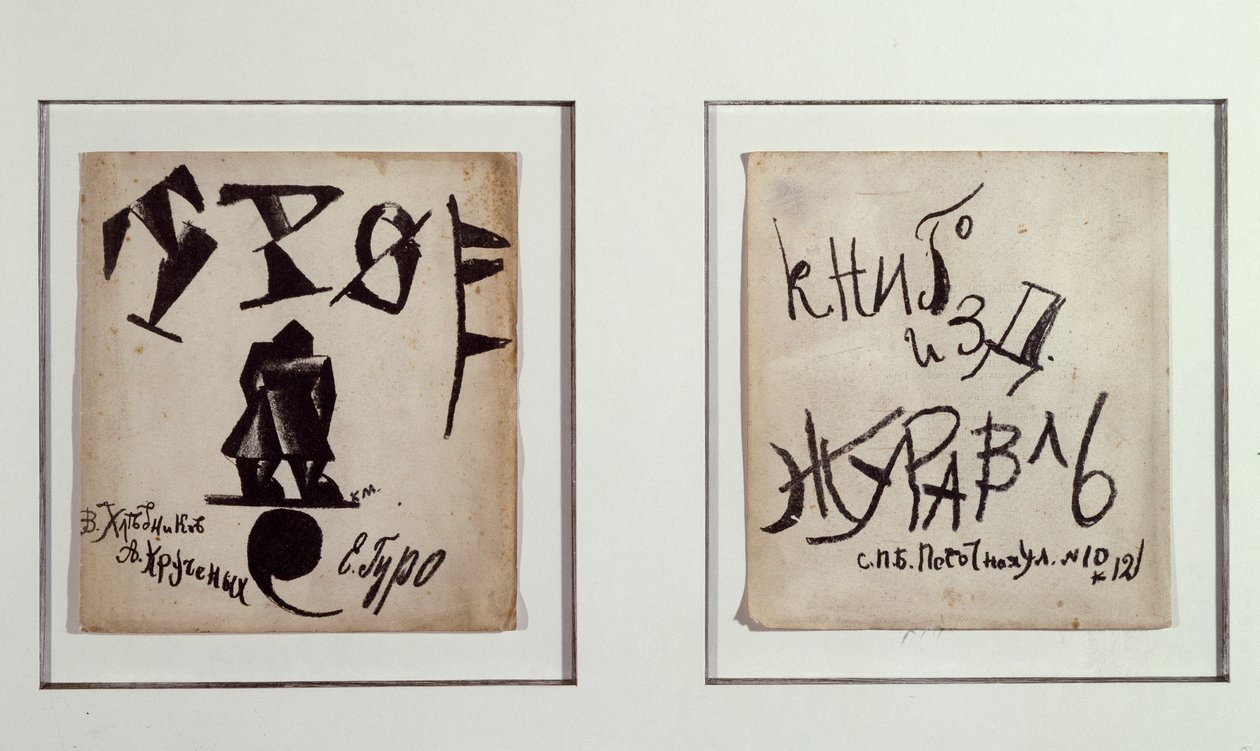 ТРОЕ
К М.
В. Хлѣбников
А. Крученых
Е. Гуро
КНИГО
изд.
ЖУРАВЛЬ
С.П.Б. Песочная Ул. N 10
к 12